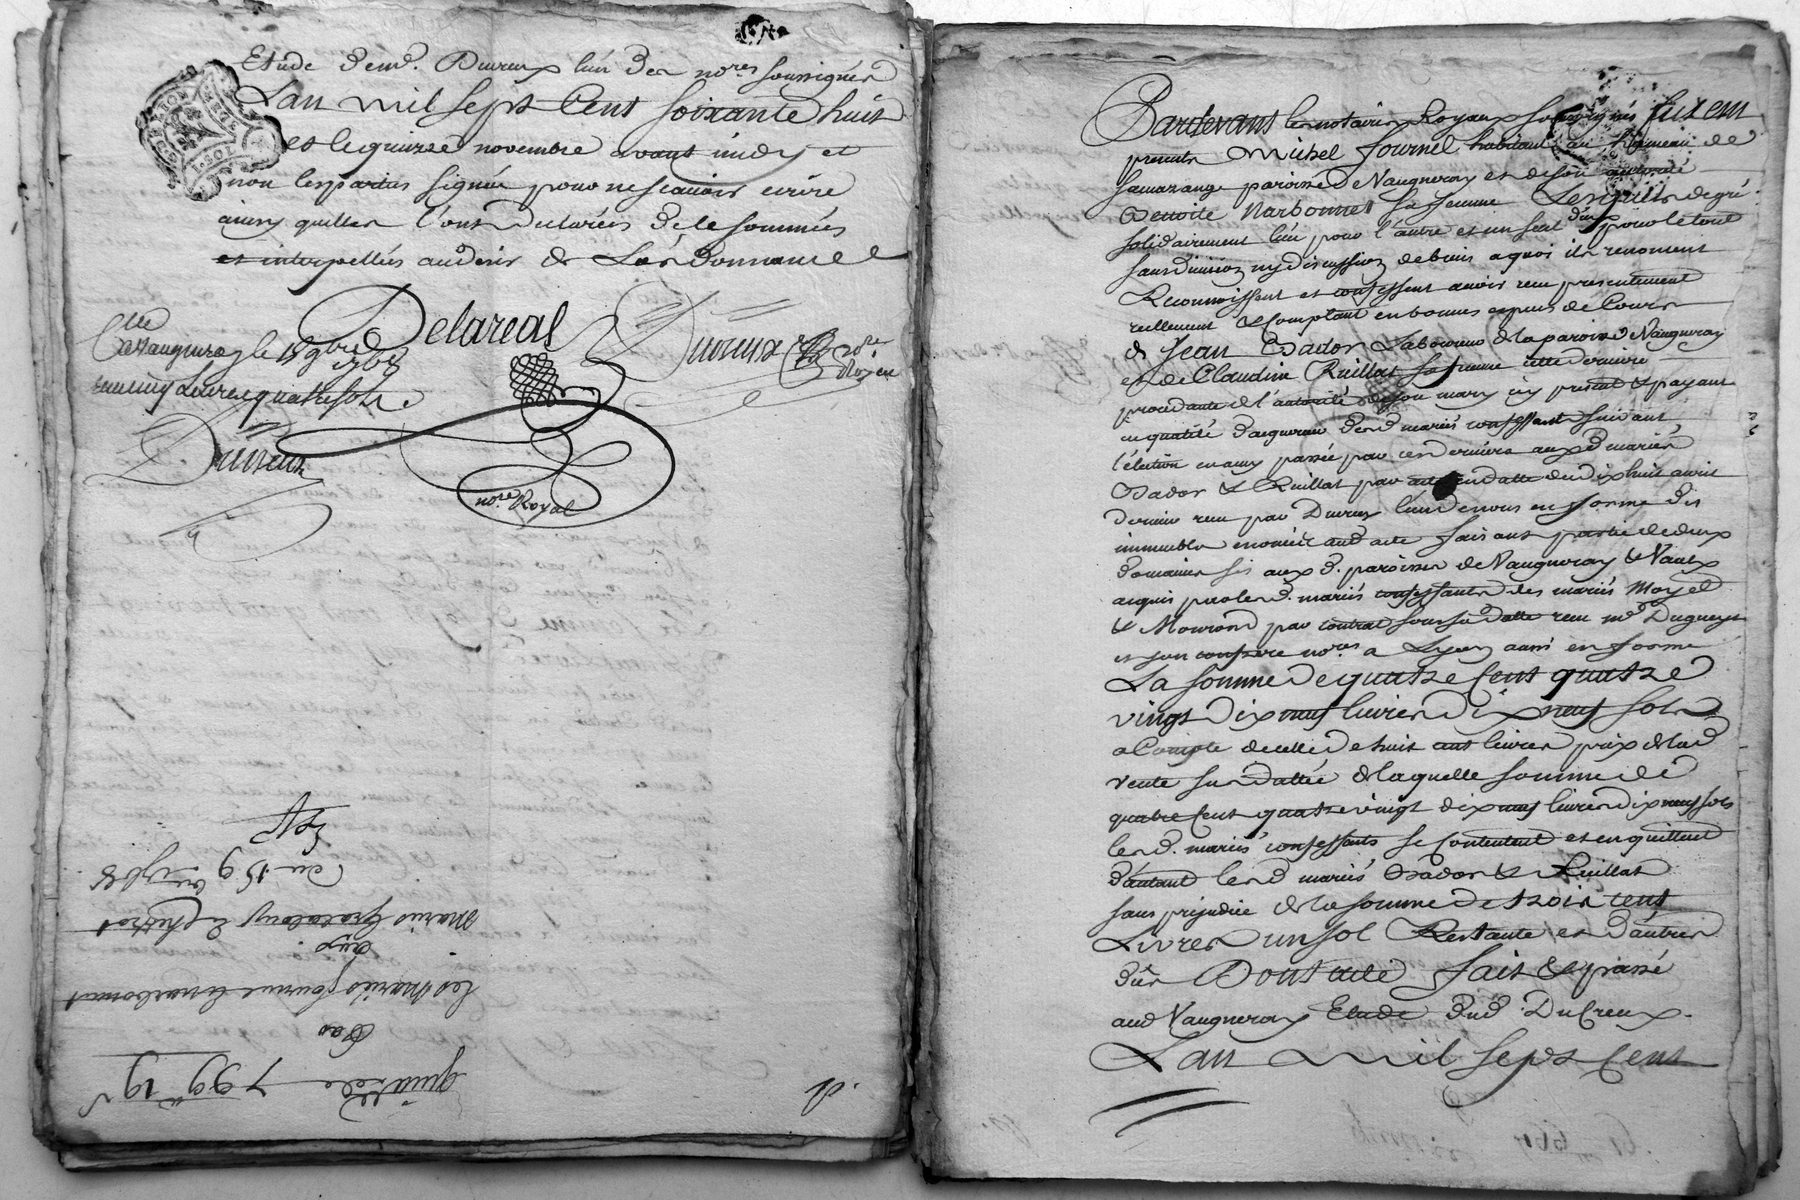 Etude deud. Ducreux lun des no.res soussignés
Lan mil sept Cent soixante huit
et le quinze novembre avant midy et
non les parties signée pour ne scavoir ecrire
ainsy quelles l'ont declarées de le sommées
et interpellées au desir de L'ordonnance
Delareal
Ducreux
no.re Royal
a Vaugneray le
Ducreux
no.re Royal
quittce 799 19
Par
les mariés fournel & narbonnet
aux
mariés
du 15 9bre
Pardevant les notaires Royaux soussignés furent
presents Michel fournel habitant au hameau de
paroisse de Vaugneray et de son autorité
Benoite Narbonnet sa femme Lesquels de gré
solidairement lun pour l'autre et un seul d'eux pour le tout
sans division ny discussion de biens a quoi ils renoncent
Reconnoissent et confessent avoir recu presentement
reellement & Comptant en bonnes especes de Cours
de Jean Bador Laboureur de la paroisse de Vaugneray
et de Claudine Ruillat sa femme cette derniere
procedante de l'autorité de son mary icy present & payant
en qualité d'acquereur desd mariés confessant suivant
l'élection en amy passée par ces derniers auxd mariés
Bador & Ruillat par acte en datte du dix huit avril
dernier recu par Ducreux lun de nous en forme des
immeubles enoncés aud acte faisant partie de deux
domaines sis aux d. paroisses de Vaugneray & Vaux
acquis par lesd. mariés confessants des mariés Moyel
& Mourond par contrat sous sa datte recu me Dugueyt
et son confrere no.res a Lyon aussi en forme
La somme de quatre Cent quatre
vingt dix neuf livres dix neuf sols
a Compte de celle de huit cent livres prix de lad
vente sus dattée de laquelle somme de
quatre Cent quatre vingt dix neuf livres dix neuf sols
lesd. mariés confessants se Contentent et en quittent
d'autant lesd mariés Bador & Ruillat
sans prejudice de la somme de trois cent
Livres un sol Restante et d'autres
dûs Dont acte fait & passé
aud Vaugneray Etude dud. DuCreux.
Lan mil sept Cent